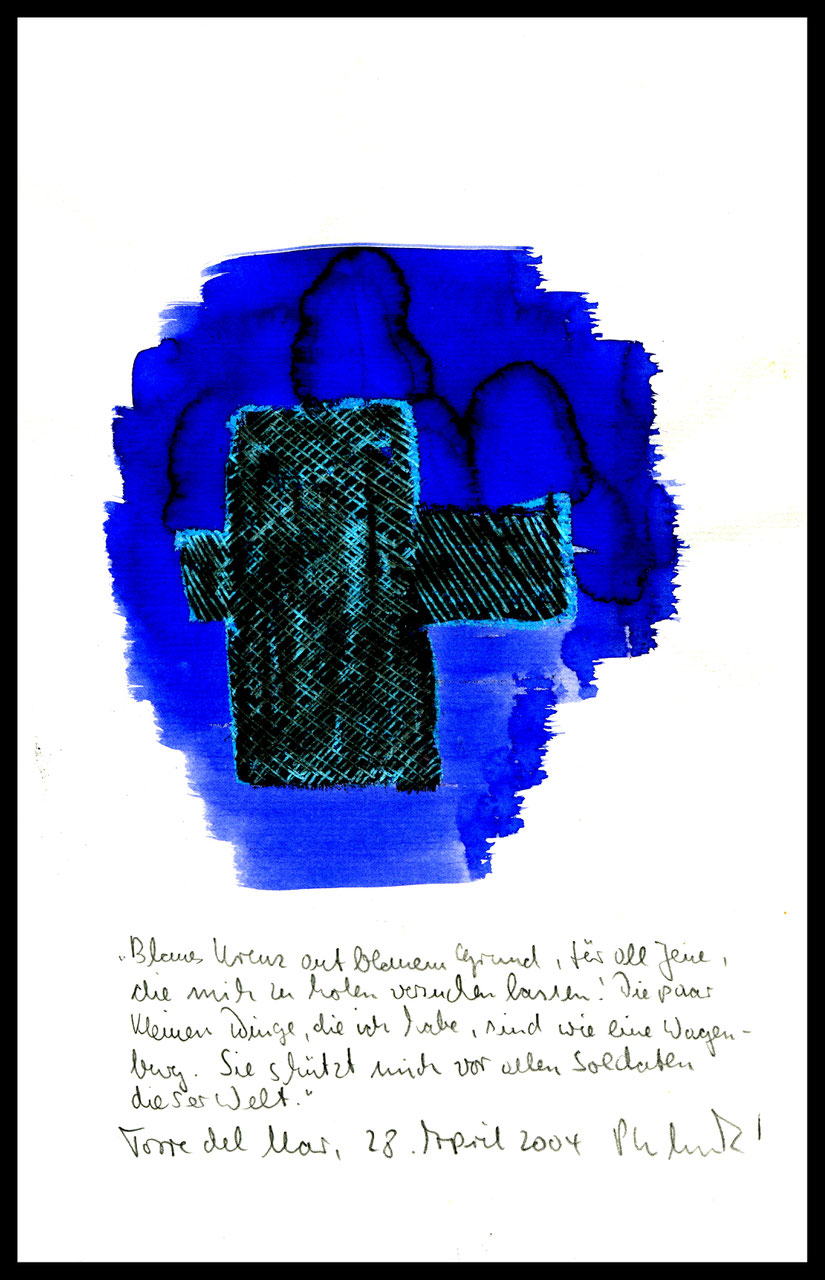 „Blaues Kreuz auf blauem Grund, für all Jene,
die mich zu holen versuchen lassen! Die paar
kleinen Dinge, die ich habe, sind wie eine Wagen-
burg. Sie schützt mich vor allen Soldaten
dieser Welt."
Torre del Mar, 28. April 2004